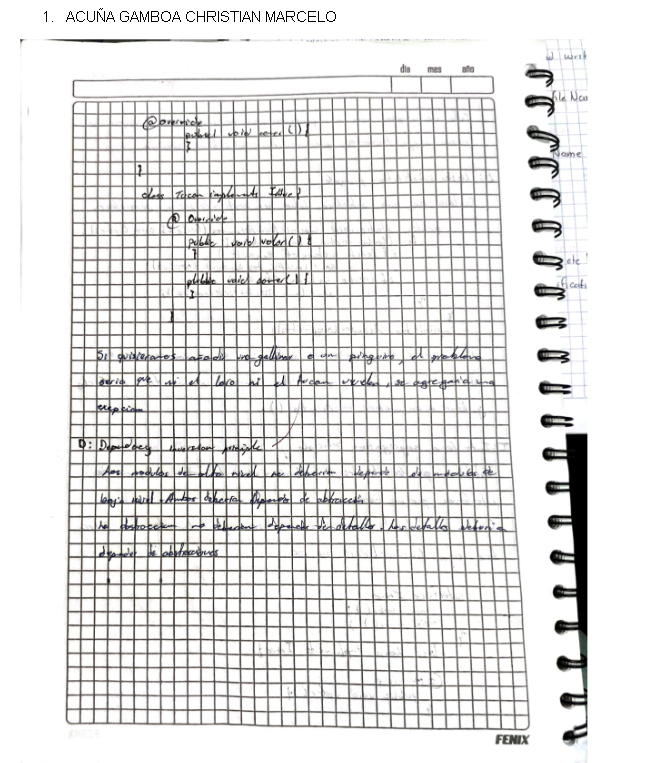 1. ACUÑA GAMBOA CHRISTIAN MARCELO
dia mes año
@override
void comer(){
}
}
class Tucan implements {
@ Override
public void volar(){
}
public void comer(){
}
}
Si quisieramos añadir una gallina o un pinguino, el problema
seria que ni el loro ni el tucan , se agregaria una
D: Dependecy inversion principle
Los modulos de alto nivel no deberian depender de modulos de
bajo nivel. Ambos deberian Depender de abstracción
la abstraccion no deberian depender de detalles. Los detalles deberia
depender de abstracciones
Name
FENIX